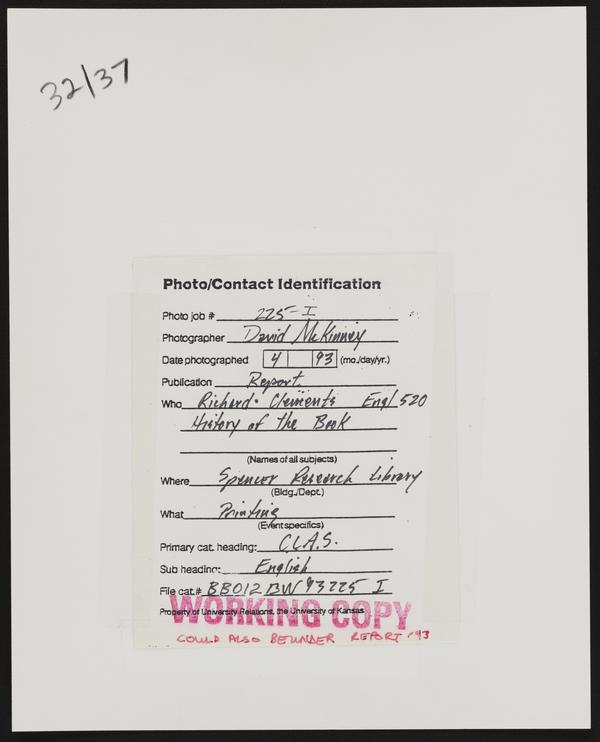 32/37
Photo/Contact Identification
Photo job # 225-I
Photographer David McKinney
Date photographed 4 93 (mo./day/yr.)
Publication Report.
Who Richard Clements Engl 520
History of the Book
(Names of all subjects)
Where Spencer Research Library
(Bldg./Dept.)
What Printing
(Event specifics)
Primary cat. heading: C.L.A.S.
Sub heading: English
File cat.# BB012 BW 93225 I
Property of University Relations, the University of Kansas
WORKING COPY
COULD ALSO BE UNDER REPORT '93